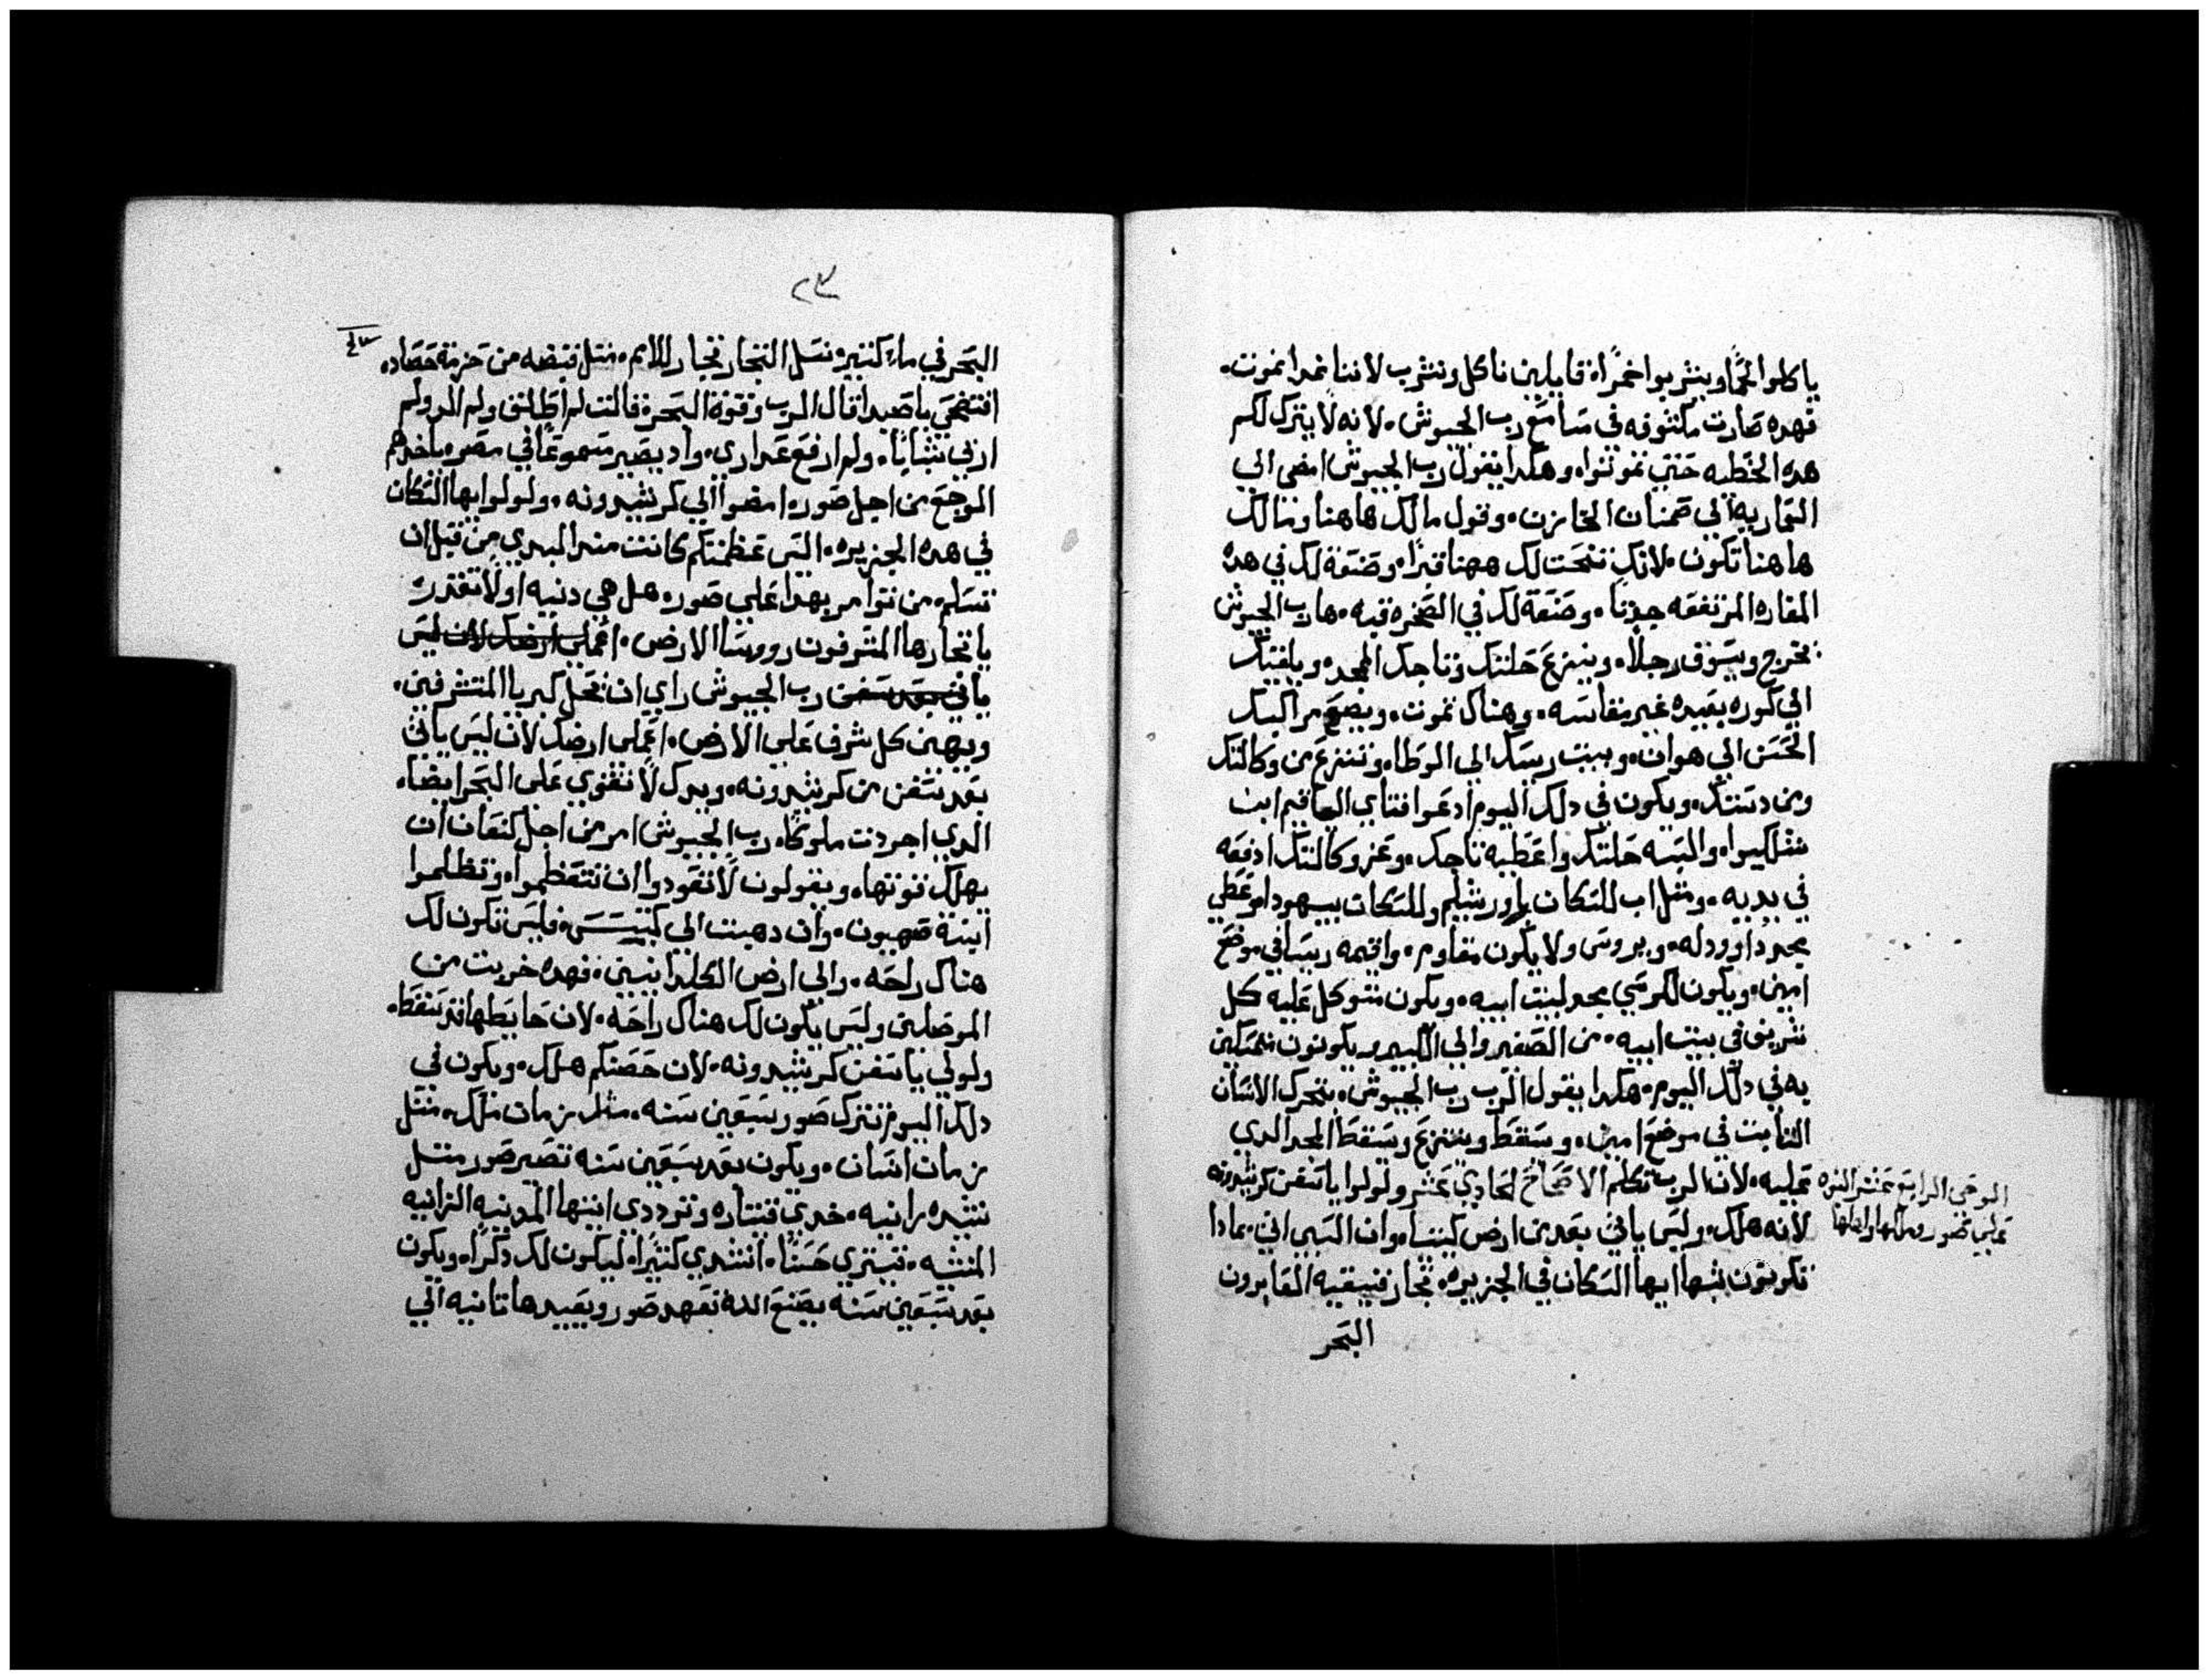 ياكلوا لحمًا ويشربوا خمرًا، قايلين ناكل ونشرب لاننا غدا نموت.
فهده صارت مكشوفه في مسامع رب الجيوش. لانه لا يترك لكم
هده الخطيه حتي تموتوا. وهكدا يقول رب الجيوش امضي الي
التماريه الي صمنان الخازن. وقول مالك هاهنا ومالك
هاهنا تكون. لانك نحت لك ههنا قبرًا. وصنعة لك في هده
المغاره المرتفعه جدًا. وصنعة لك في الصخره قبه. ها رب الجيوش
يخرج ويسوق رجلًا. وينزع حلتك وتاجك المجده ويلقيك
الي كوره بعيده غير مقاسه. وهناك تموت. ويضع مراكبك
الحسن الي هوان. وبيت ريسك الي الوطا. وتنزع من وكالتك
ومن دستك. ويكون في دلك اليوم ادعوا فتاي الياقيم ابن
شلكيوا. والبسه حلتك واعطيه تاجك. وعز وكالتك ادفعه
في يديه. ومثل اب للسكان باورشليم وللسكان بيهودا. وعطي
مجد داوود له. ويروس ولا يكون مقاوم. واقيمه ريسا في موضع
امين. ويكون الكرسي مجد لبيت ابيه. ويكون متوكل عليه كل
شريف في بيت ابيه. من الصغير والي الكبير ويكونون متمسكين
به في دلك اليوم. هكدا يقول الرب رب الجيوش. يتحرك الانسان
الثابت في موضع امين. وسقط وينتزع ويسقط المجد الدي
عليه. لان الرب تكلم الاصحاح الحادي عشر ولولوا يا سفن كرشدونه
لانه هلك. وليس ياتي بعد من ارض كيتسا. وان السبي اتي. بمادا
تكونون شبها ايها السكان في الجزيره. تجار فنيقيه العابرون
البحر
الوحي الرابع عشر النبوه
علي صور وملكها واهلها
٢٣
البحر في ماء كثير. نسل التجار تجار للامم. مثل قبضه من حزمة حصاده.
افتضحي يا صيدا قال الرب وقوة البحر قالت لم اطلق ولم الد ولم
اربي شبابًا. ولم ارفع عداري. واد يصير مسموعًا في مصر ياخدهم
الوجع من اجل صور. امضوا الي كرشدونه. ولولوا ايها السكان
في هده الجزيره. التي عظمتكم كانت مند البدي من قبل ان
تسلم. من توامر بهدا علي صور. هل هي دنيه او لا تقدر.
يا تجارها المشرفون روسا الارض. اعملي ارضك لان ليس
ياتي بعد سفن رب الجيوش راي ان يحل كبريا المتشرفين.
ويهين كل شرف علي الارض. اعملي ارضك لان ليس ياتي
بعد سفن من كرشدونه. ويدك لا تقوي علي البحر ايضًا.
الدي اجردت ملوكًا. رب الجيوش امر من اجل كنعان ان
يهلك قوتها. ويقولون لا تعودوا ان تتعظموا. وتظلموا
ابنة صهيون. وان دهبت الي كيتسس. فليس تكون لك
هناك راحه. والي ارض الكلدانيين. فهده خربت من
الموصلين وليس يكون لك هناك راحه. لان حايطها قد سقط.
ولولي يا سفن كرشدونه. لان حصنكم هلك. ويكون في
دلك اليوم تترك صور سبعين سنه. مثل زمان ملك. مثل
زمان انسان. ويكون بعد سبعين سنه تصير صور مثل
نشيد زانيه. خدي قيتاره وترددي ايتها المدينه الزانيه
المنشيه. تيتري حسنًا. انشدي كثيرًا. ليكون لك دكرًا. ويكون
بعد سبعين سنه يصنع الله تعهد صور ويعيدها تانيه الي